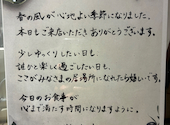 春の風が心地よい季節になりました。
本日もご来店いただきありがとうございます。
少しゆっくりしたい日も、
誰かと楽しく過ごしたい日も、
ここがみなさまの居場所になれたら嬉しいです。
今日のお食事が
心まで満たす時間になりますように。